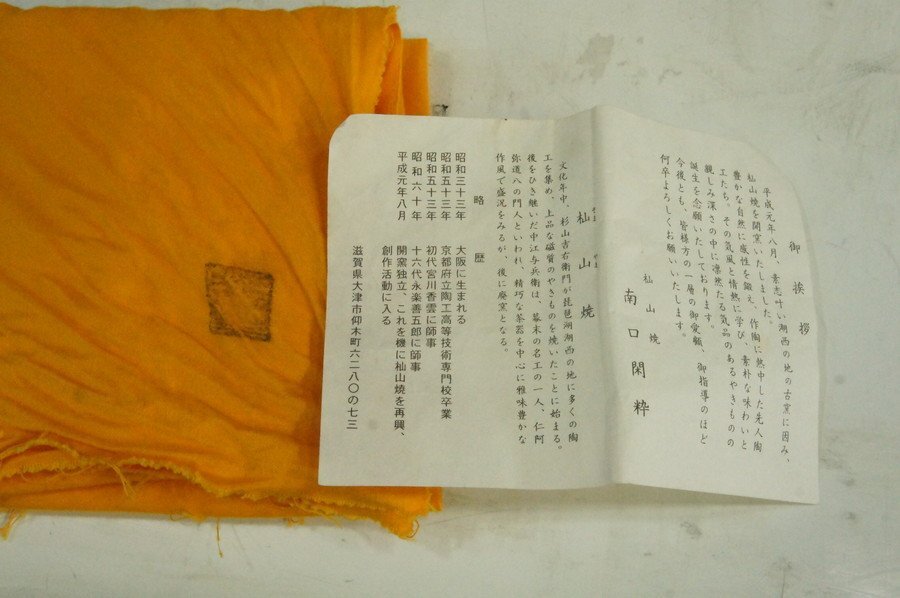 御挨拶
平成元年八月、素志叶い湖西の地の古窯に因み、
杣山焼を開窯いたしました。
豊かな自然に感性を鍛え、作陶に熱中した先人陶
工たち。その気風と情熱に学び、素朴な味わいと
親しみ深さの中に凛然たる気品のあるやきものの
誕生を念願いたしております。
今後とも、皆様方の一層の御愛顧、御指導のほど
何卒よろしくお願いいたします。
杣山焼
南口閑粋
杣山焼
文化年中、杉山吉右衛門が琵琶湖湖西の地に多くの陶
工を集め、上品な磁質のやきものを焼いたことに始まる。
後をひき継いだ中江与兵衛は、幕末の名工の一人、仁阿
弥道八の門人といわれ、精巧な茶器を中心に雅味豊かな
作風で盛況をみるが、後に廃窯となる。
略歴
昭和三十三年 大阪に生まれる
昭和五十三年 京都府立陶工高等技術専門校卒業
昭和五十三年 初代宮川香雲に師事
昭和六十年 十六代永楽善五郎に師事
平成元年八月 開窯独立、これを機に杣山焼を再興、
創作活動に入る
滋賀県大津市仰木町六二八〇の七三